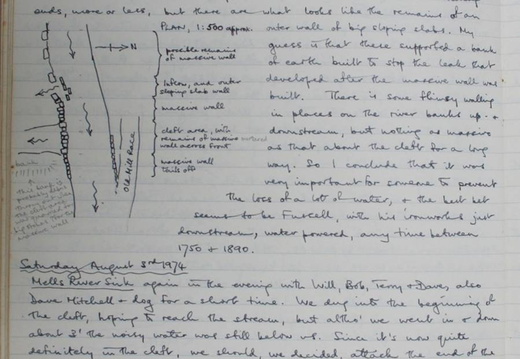 ends, more or less, but there are what looks like the remains of an
outer wall of big sloping slabs. My
guess is that these supported a bank
of earth built to stop the leak that
developed after the massive wall was
built. There is some flimsy walling
in places on the river banks up- +
downstream, but nothing as massive
as that about the cleft for a long
way. So I conclude that it was
very important for someone to prevent
the loss of a lot of water, + the best bet
seems to be Fussell, with his ironworks just
downstream, water powered, any time between
1750 + 1890.
PLAN, 1:500 approx.
N
possible remains
of massive wall
Inflow, and outer
sloping slab wall
massive wall
cleft area, with
remains of massive
wall across front
massive wall
tails off
Old Mill Race
Saturday August 3rd 1974
Mells River Sink again in the evening with Will, Bob, Terry + Dave, also
Dave Mitchell + dog for a short time. We dug into the beginning of
the cleft, hoping to reach the stream, but altho' we went in + down
about 3' the noisy water was still below us. Since it's now quite
definitely in the cleft, we should, we decided, attack the end of the